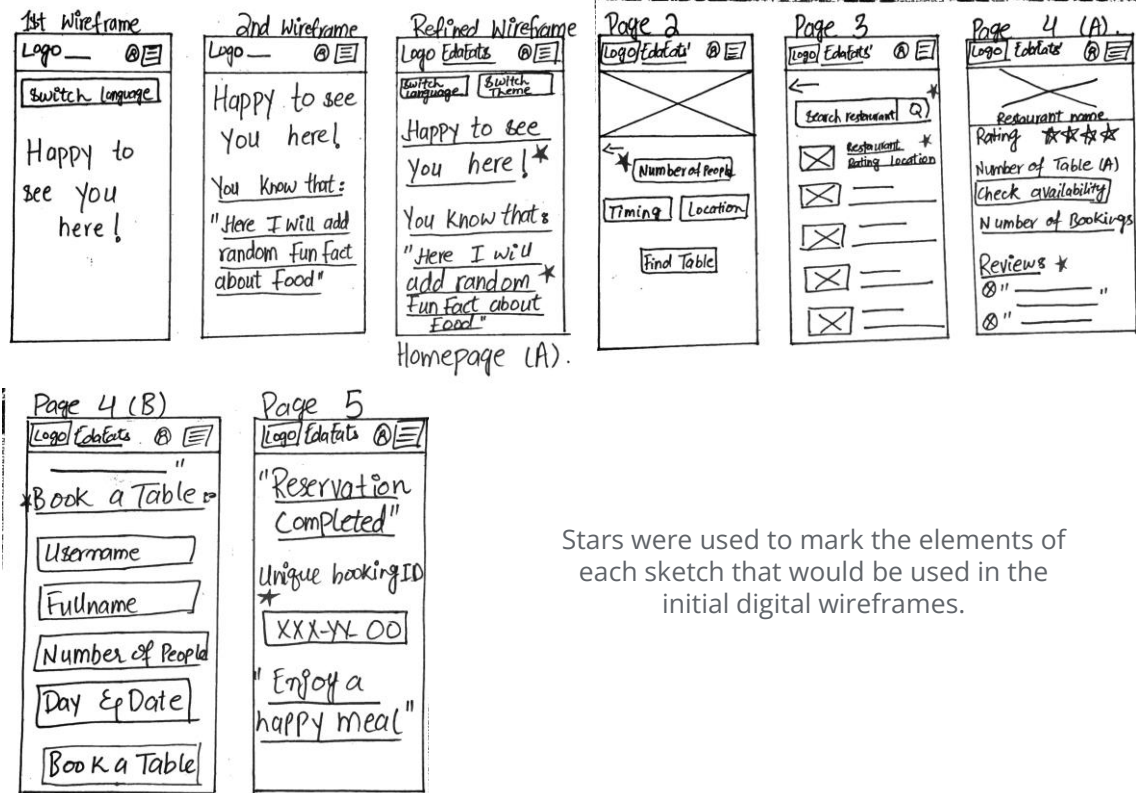 1st Wireframe
Logo
Switch Language
Happy to
see you
here!
2nd Wireframe
Logo
Happy to see
you here!
You Know that:
"Here I will add
random Fun fact
about Food"
Refined Wireframe
Logo EdaEats
Switch Language
Switch Theme
Happy to see
you here!
You Know that:
"Here I will
add random
Fun Fact about
Food"
Homepage (A).
Page 2
Logo EdaEats'
Number of People
Timing
Location
Find Table
Page 3
Logo EdaEats'
Search restaurant
Restaurant
Rating Location
Page 4 (A).
Logo EdaEats'
Restaurant name
Rating
Number of Table (A)
Check availability
Number of Bookings
Reviews
" "
"
Page 4 (B)
Logo EdaEats
"
Book a Table:
Username
Fullname
Number of People
Day & Date
Book a Table
Page 5
Logo EdaEats
"Reservation
Completed"
Unique booking ID
XXX-YY-OO
"Enjoy a
happy meal"
Stars were used to mark the elements of
each sketch that would be used in the
initial digital wireframes.